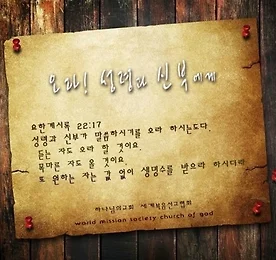 오라! 성령과 신부에게
요한계시록 22:17
성령과 신부가 말씀하시기를 오라 하시는도다
듣는 자도 오라 할 것이요.
목마른 자도 올 것이요.
또 원하는 자는 값 없이 생명수를 받으라 하시더라
하나님의교회 세계복음선교협회
world mission society church of god